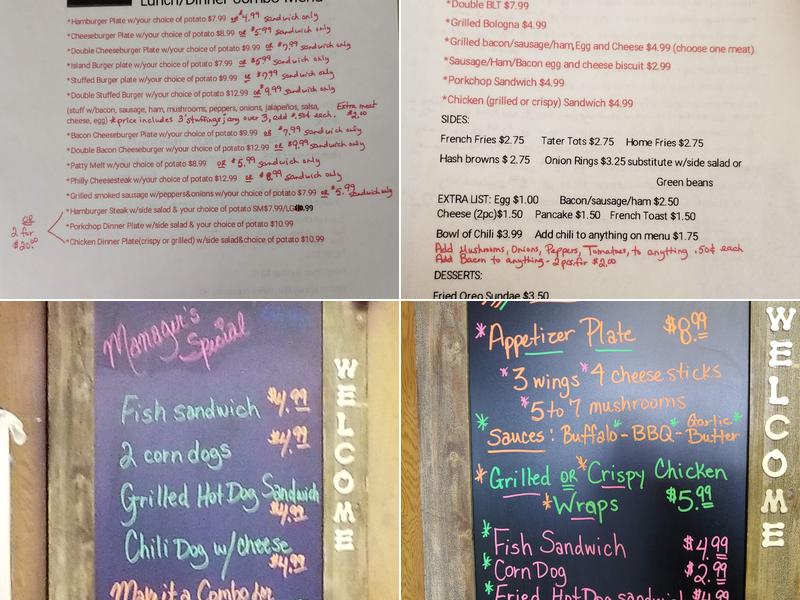 Lunch/Dinner Combo Menu
*Hamburger Plate w/your choice of potato $7.99 or $4.99 sandwich only
*Cheeseburger Plate w/your choice of potato $8.99 or $5.99 sandwich only
*Double Cheeseburger Plate w/your choice of potato $9.99 or $7.99 sandwich only
*Island Burger plate w/your choice of potato $7.99 or $5.99 sandwich only
*Stuffed Burger plate w/your choice of potato $9.99 or $7.99 sandwich only
*Double Stuffed Burger w/your choice of potato $12.99 or $9.99 sandwich only
(stuff w/bacon, sausage, ham, mushrooms, peppers, onions, jalapeños, salsa, Extra meat
cheese, egg) *price includes 3 stuffings; any over 3, add .50¢ each. $2.00
*Bacon Cheeseburger Plate w/your choice of potato $9.99 or $7.99 sandwich only
*Double Bacon Cheeseburger w/your choice of potato $12.99 or $9.99 sandwich only
*Patty Melt w/your choice of potato $8.99 or $5.99 sandwich only
*Philly Cheesesteak w/your choice of potato $12.99 or $8.99 sandwich only
*Grilled smoked sausage w/peppers&onions w/your choice of potato $7.99 or $5.99 sandwich only
*Hamburger Steak w/side salad & your choice of potato SM$7.99/LG .99
*Porkchop Dinner Plate w/side salad & your choice of potato $10.99
*Chicken Dinner Plate(crispy or grilled) w/side salad&choice of potato $10.99
OR
2 for
$20.00
*Double BLT $7.99
*Grilled Bologna $4.99
*Grilled bacon/sausage/ham,Egg and Cheese $4.99 (choose one meat)
*Sausage/Ham/Bacon egg and cheese biscuit $2.99
*Porkchop Sandwich $4.99
*Chicken (grilled or crispy) Sandwich $4.99
SIDES:
French Fries $2.75 Tater Tots $2.75 Home Fries $2.75
Hash browns $ 2.75 Onion Rings $3.25 substitute w/side salad or
Green beans
EXTRA LIST: Egg $1.00 Bacon/sausage/ham $2.50
Cheese (2pc)$1.50 Pancake $1.50 French Toast $1.50
Bowl of Chili $3.99 Add chili to anything on menu $1.75
Add Mushrooms, Onions, Peppers, Tomatoes, to anything .50¢ each
Add Bacon to anything - 2 pcs. for $2.00
DESSERTS:
Fried Oreo Sundae $3.50
Manager's
Special
Fish sandwich $4.99
2 corn dogs $4.99
Grilled Hot Dog Sandwich
$4.99
Chili Dog w/cheese
$4.99
Make it a Combo for
WELCOME
*Appetizer Plate $8.99
*3 wings *4 cheese sticks
*5 to 7 mushrooms
*Sauces: Buffalo - BBQ - Garlic Butter*
*Grilled OR *Crispy Chicken
*Wraps $5.99
*Fish Sandwich $4.99
*Corn Dog $2.99
*Fried Hot Dog sandwich $4.99
WELCOME